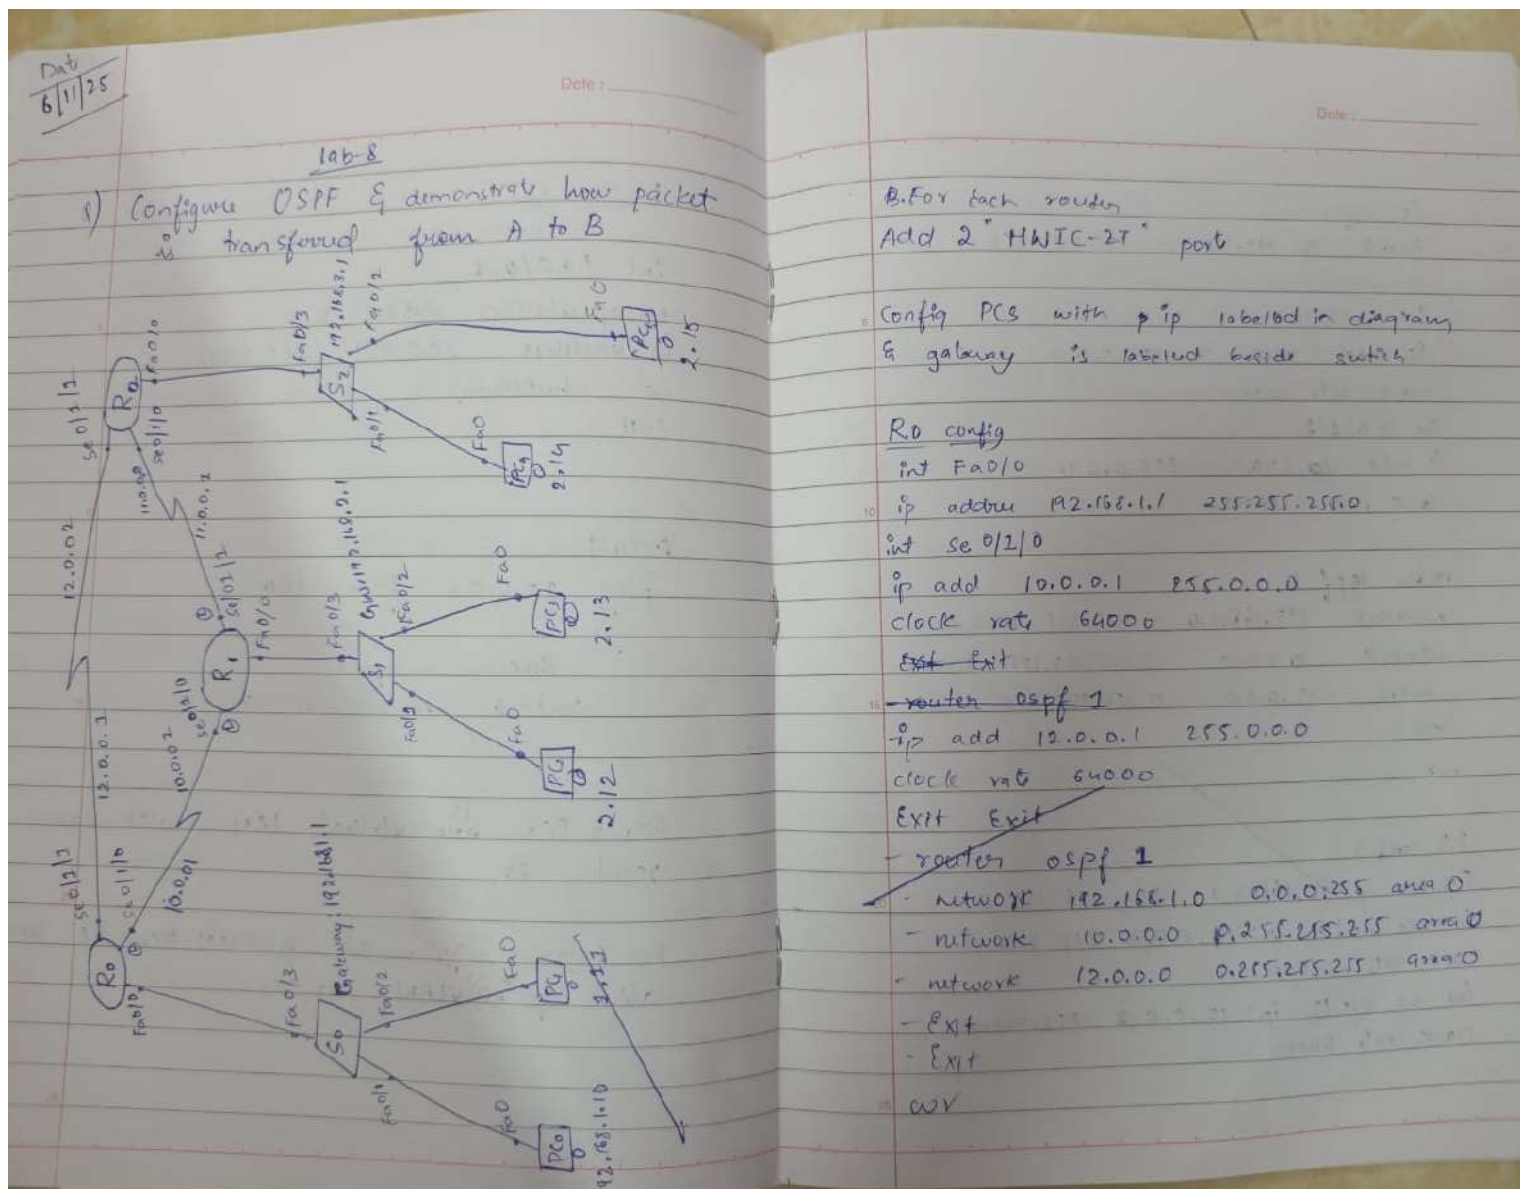 Dat
6/11/25
Date :
lab-8
1) Configure OSPF & demonstrat how packet
is transferred from A to B
Se0/2/2
R2
Fa0/0
Se0/1/0
11.0.02
12.0.02
11.0.0.1
Fa0/3
192.168.3.1
Fa0/2
S2
Fa0/1
Fa0
PC4
2.14
Fa0
2.15
R1
Fa0/0
10.0.02
12.0.0.1
Fa0/3
GW:192.168.2.1
Fa0/2
S1
Fa0
PC3
2.13
Fa0
PC2
2.12
Se0/1/0
10.0.01
R0
Fa0/0
Fa0/3
Gateway: 192.168.1.1
Fa0/2
S0
Fa0/1
Fa0
PC1
Fa0
PC0
92.168.1.10
Date :
B. For each router
Add 2 "HWIC-2T" port
Config PCS with ip labeled in diagram
& gateway is labeled beside switch
R0 config
int Fa0/0
ip addres 192.168.1.1 255.255.255.0
int se 0/1/0
ip add 10.0.0.1 255.0.0.0
clock rate 64000
Exit Exit
- router ospf 1
ip add 12.0.0.1 255.0.0.0
clock rate 64000
Exit Exit
- router ospf 1
- network 192.168.1.0 0.0.0.255 area 0
- network 10.0.0.0 0.255.255.255 area 0
- network 12.0.0.0 0.255.255.255 area 0
- Exit
- Exit
wr